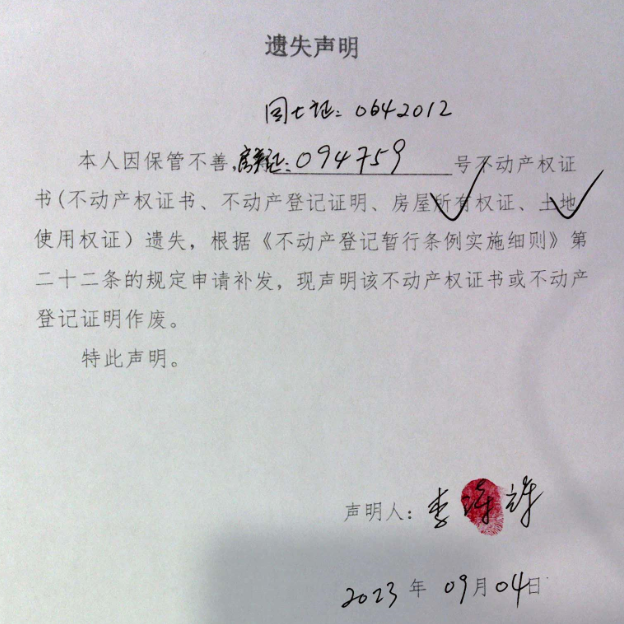 遗失声明
国土证：0642012
本人因保管不善，房产证：094759号不动产权证
书(不动产权证书、不动产登记证明、房屋所有权证、土地
使用权证）遗失，根据《不动产登记暂行条例实施细则》第
二十二条的规定申请补发，现声明该不动产权证书或不动产
登记证明作废。
特此声明。
声明人：李
2023年09月04日